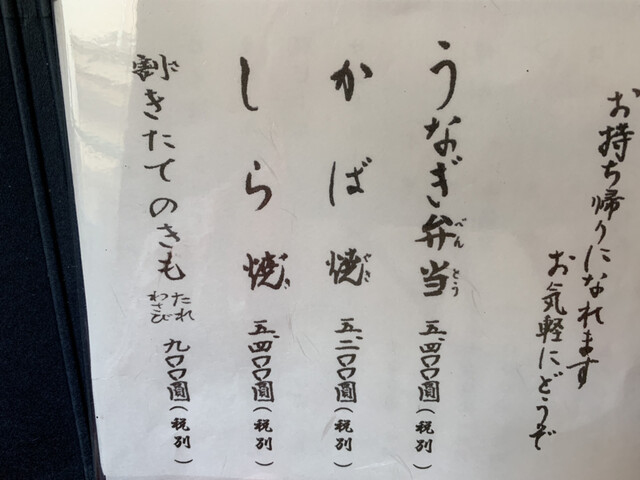 お持ち帰りになれます
お気軽にどうぞ
うなぎ弁当 五、四〇〇圓(税別)
べんとう
かば焼 五、二〇〇圓(税別)
やき
しら焼 五、四〇〇圓(税別)
やき
割きたてのきも たれ わさび 九〇〇圓(税別)
さ